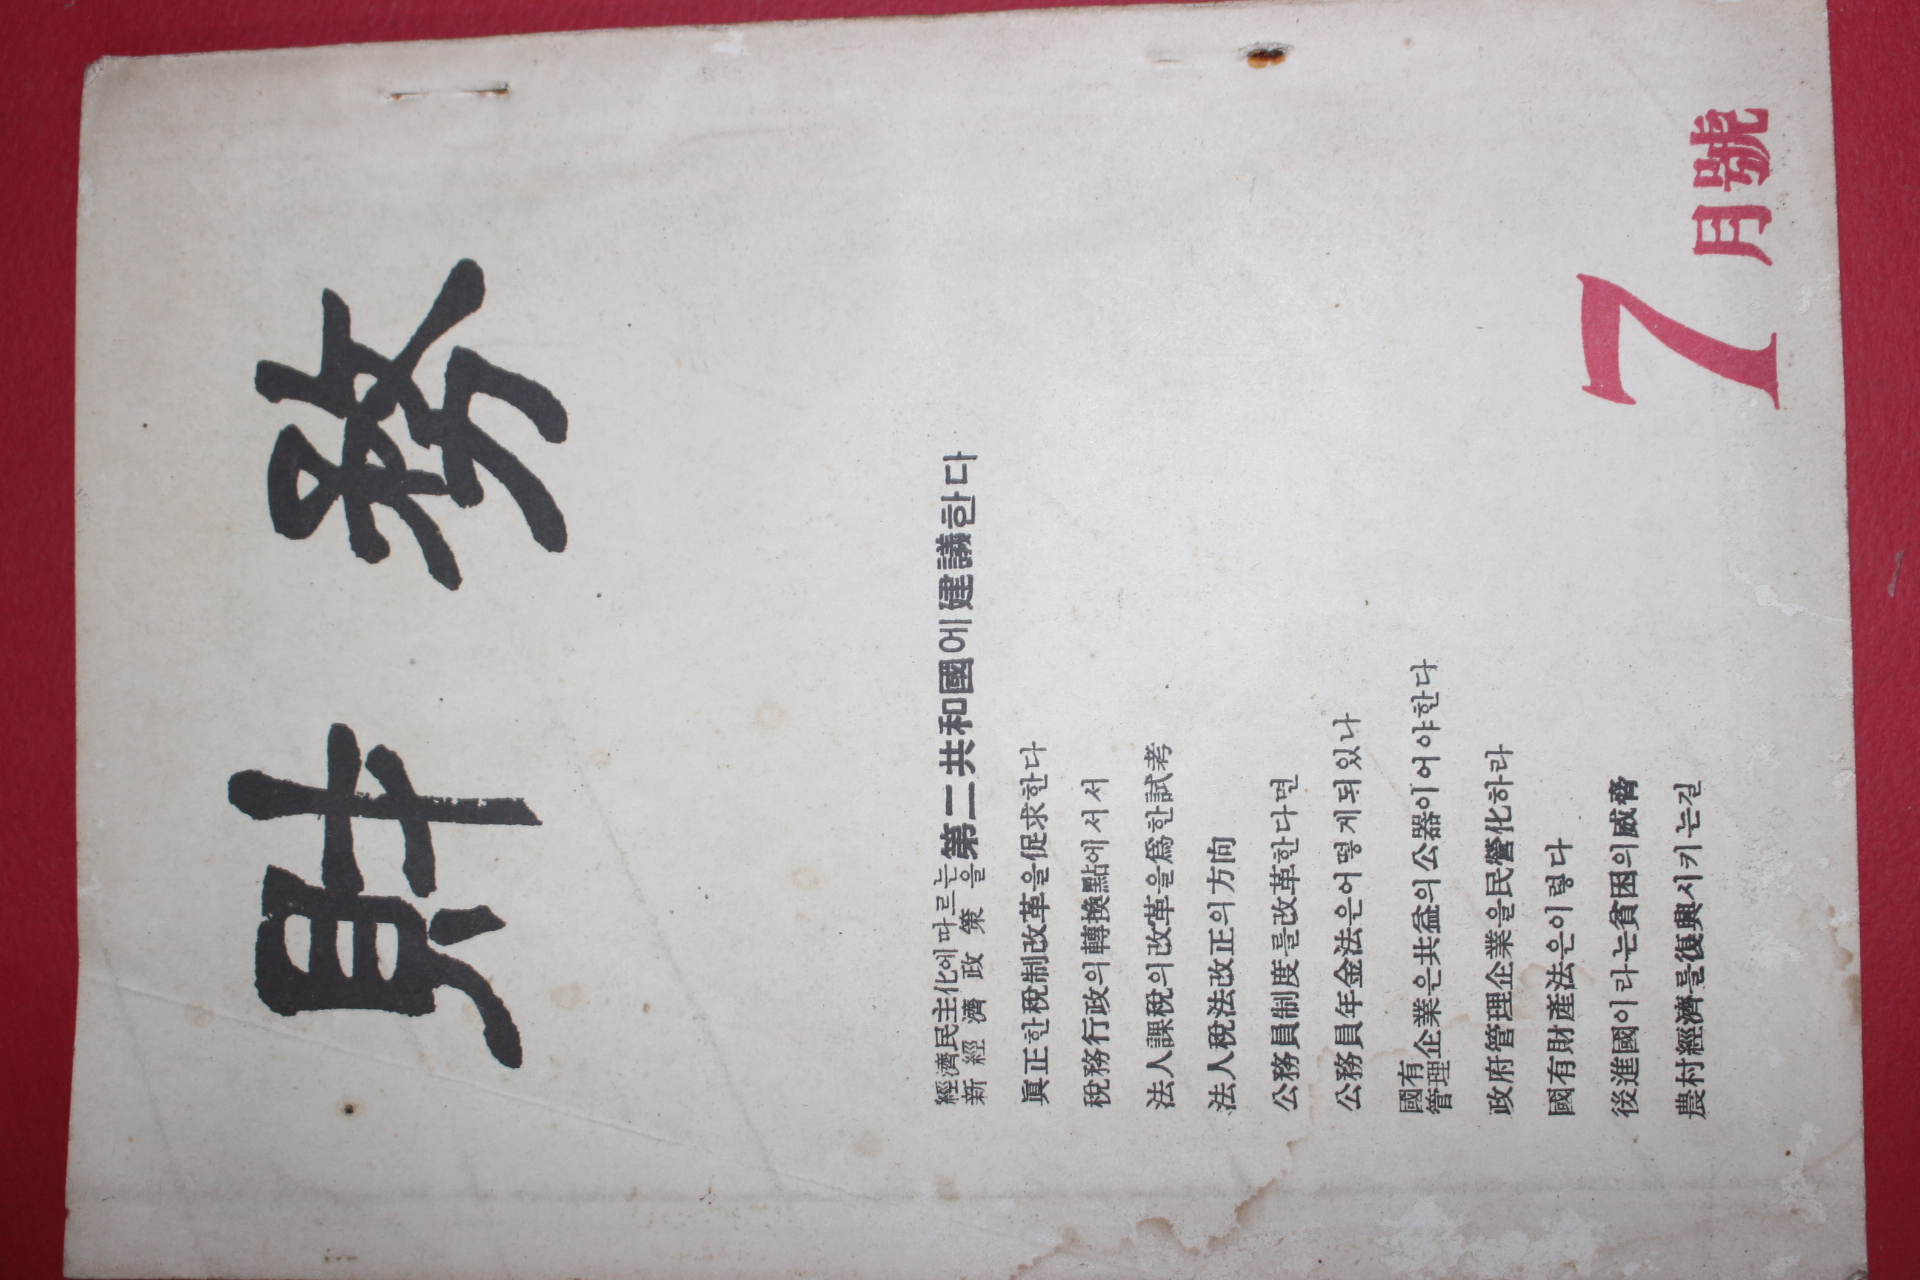 財務
經濟民主化에따르는
新經濟政策을
第二共和國에建議한다
眞正한稅制改革을促求한다
稅務行政의轉換點에서서
法人課稅의改革을爲한試考
法人稅法改正의方向
公務員制度를改革한다면
公務員年金法은어떻게되있나
國有管理企業은共益의公器이어야한다
政府管理企業을民營化하라
國有財產法은이렇다
後進國이라는貧困의威脅
農村經濟를復興시키는길
7月號